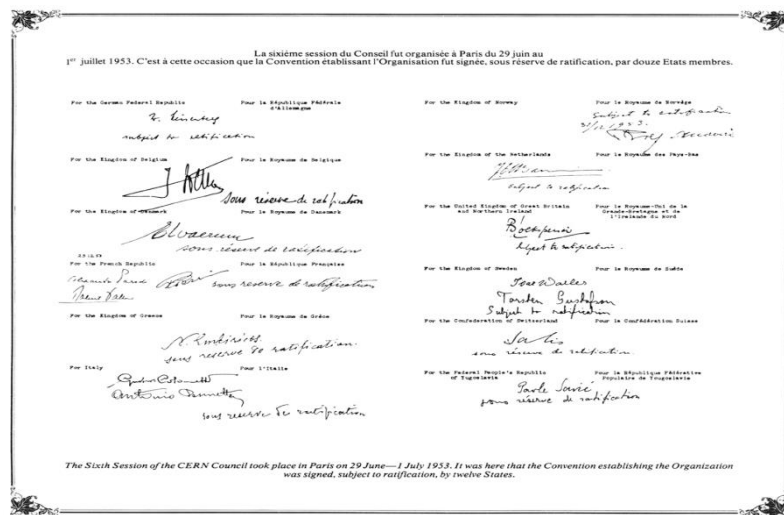 La sixième session du Conseil fut organisée à Paris du 29 juin au
1er juillet 1953. C'est à cette occasion que la Convention établissant l'Organisation fut signée, sous réserve de ratification, par douze Etats membres.
For the German Federal Republic Pour la République Fédérale
d'Allemagne
subject to ratification
For the Kingdom of Belgium Pour le Royaume de Belgique
sous réserve de ratification
For the Kingdom of Denmark Pour le Royaume de Danemark
sous réserve de ratification
For the French Republic Pour la République Française
sous reserve de ratification
For the Kingdom of Greece Pour le Royaume de Grèce
sous reserve de ratification.
For Italy Pour l'Italie
Antonio
sous reserve de ratification
For the Kingdom of Norway Pour le Royaume de Norvège
Subject to ratification
For the Kingdom of the Netherlands Pour le Royaume des Pays-Bas
subject to ratification
For the United Kingdom of Great Britain Pour le Royaume-Uni de la
and Northern Ireland Grande-Bretagne et de
l'Irelande du Nord
subject to ratification.
For the Kingdom of Sweden Pour le Royaume de Suède
Torsten Gustafson
Subject to ratification
For the Confederation of Switzerland Pour la Confédération Suisse
sous réserve de ratification.
For the Federal People's Republic Pour la République Fédérative
of Yugoslavia Populaire de Yougoslavie
Pavle Savić
sous réserve de ratification
The Sixth Session of the CERN Council took place in Paris on 29 June—1 July 1953. It was here that the Convention establishing the Organization
was signed, subject to ratification, by twelve States.